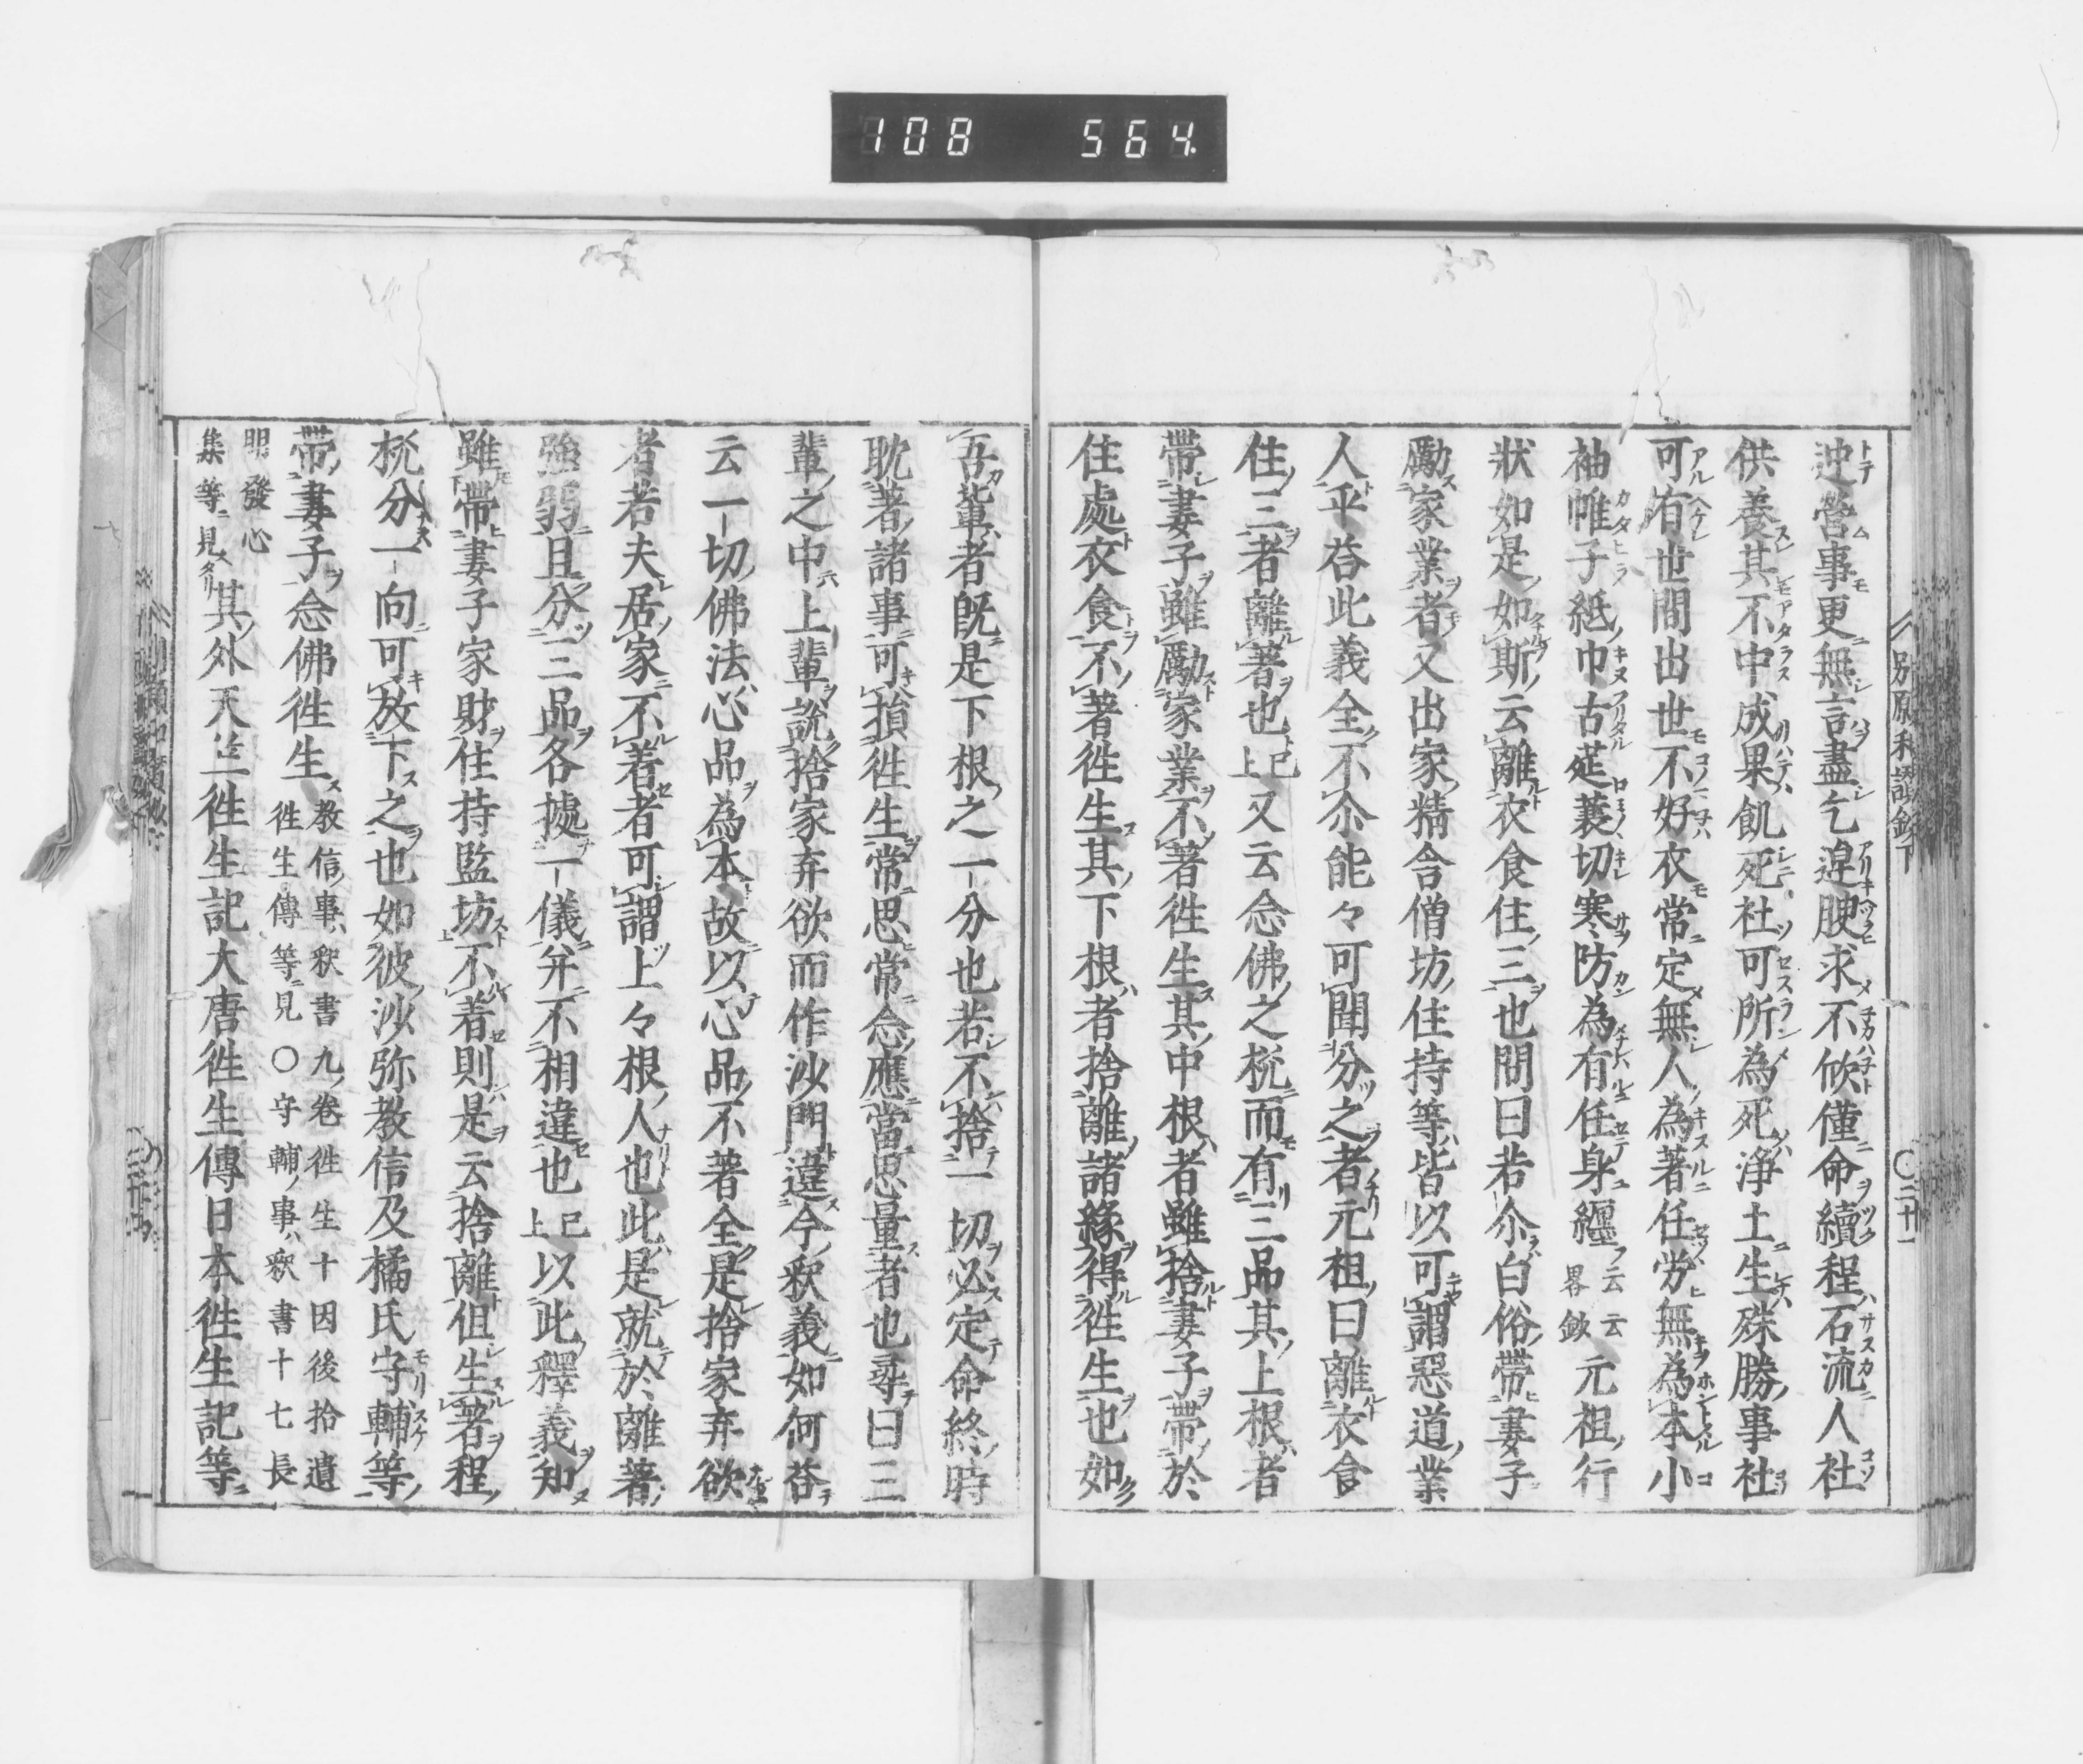 108 564
別願和讃鈔下 〇二十一
迚營事更無言盡乞遑腴求不傾僅命續程石流人社
供養其不中成果飢死社可所為死浄土生殊勝事社
可有世間出世不好衣常定無人為著任労無為本小
袖帷子紙巾古莚蓑切寒防為有任身纒云云畧欤元祖行
狀如是如斯云離衣食住三也問曰若尒白俗帶妻子
勵家業者又出家精舎僧坊住持等皆以可謂惡道業
人乎荅此義全不尒能々可聞分之者元祖曰離衣食
住三者離著也已上又云念佛之梲而有三品其上根者
帶妻子雖勵家業不著徃生其中根者雖捨妻子帶於
住處衣食不著徃生其下根者捨離諸緣得徃生也如
吾輩者既是下根之一分也若不捨一切必定命終時
耽著諸事可損徃生常思常念應當思量者也尋曰三
輩之中上輩說捨家弃欲而作沙門違今釈義如何荅
云一切佛法心品為本故以心品不著全是捨家弃欲
者若夫居家不着者可謂上々根人也此是就於離著
強弱且分三品各據一儀弁不相違也已上以此釋義知
雖帶妻子家財住持監坊不著則是云捨離但生著程
梲分一向可放下之也如彼沙弥教信及橘氏守輔等
帶妻子念佛徃生教信事釈書九卷徃生十因後拾遺徃生傳等見〇守輔事釈書十七長
明發心集等見其外天竺徃生記大唐徃生傳日本徃生記等